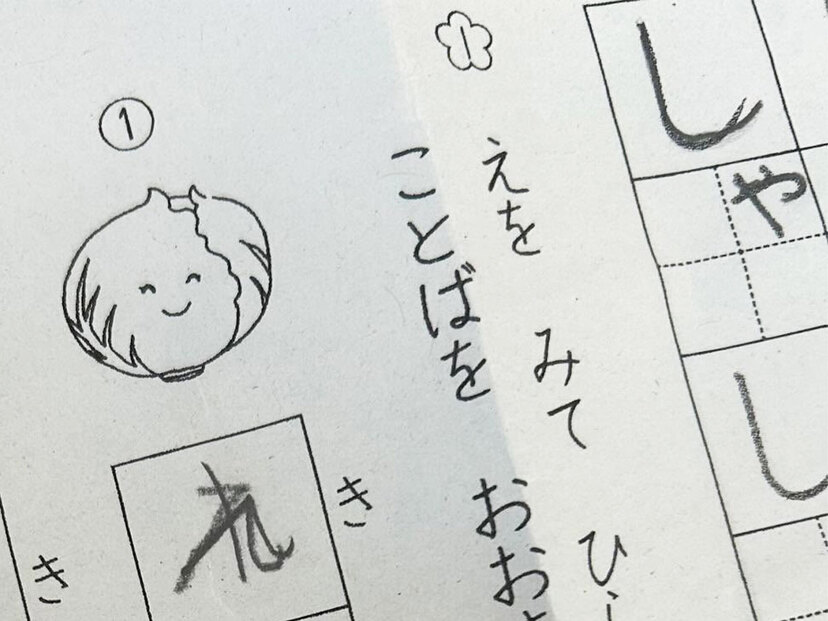 し
ゃ
し
1
えを みて ひ
ことばを おお
1
き
れ
き